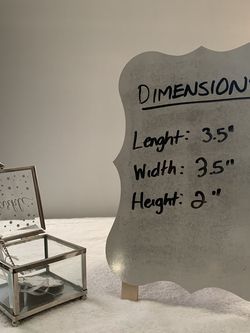 DIMENSION
Lenght: 3.5"
Width: 3.5"
Height: 2"